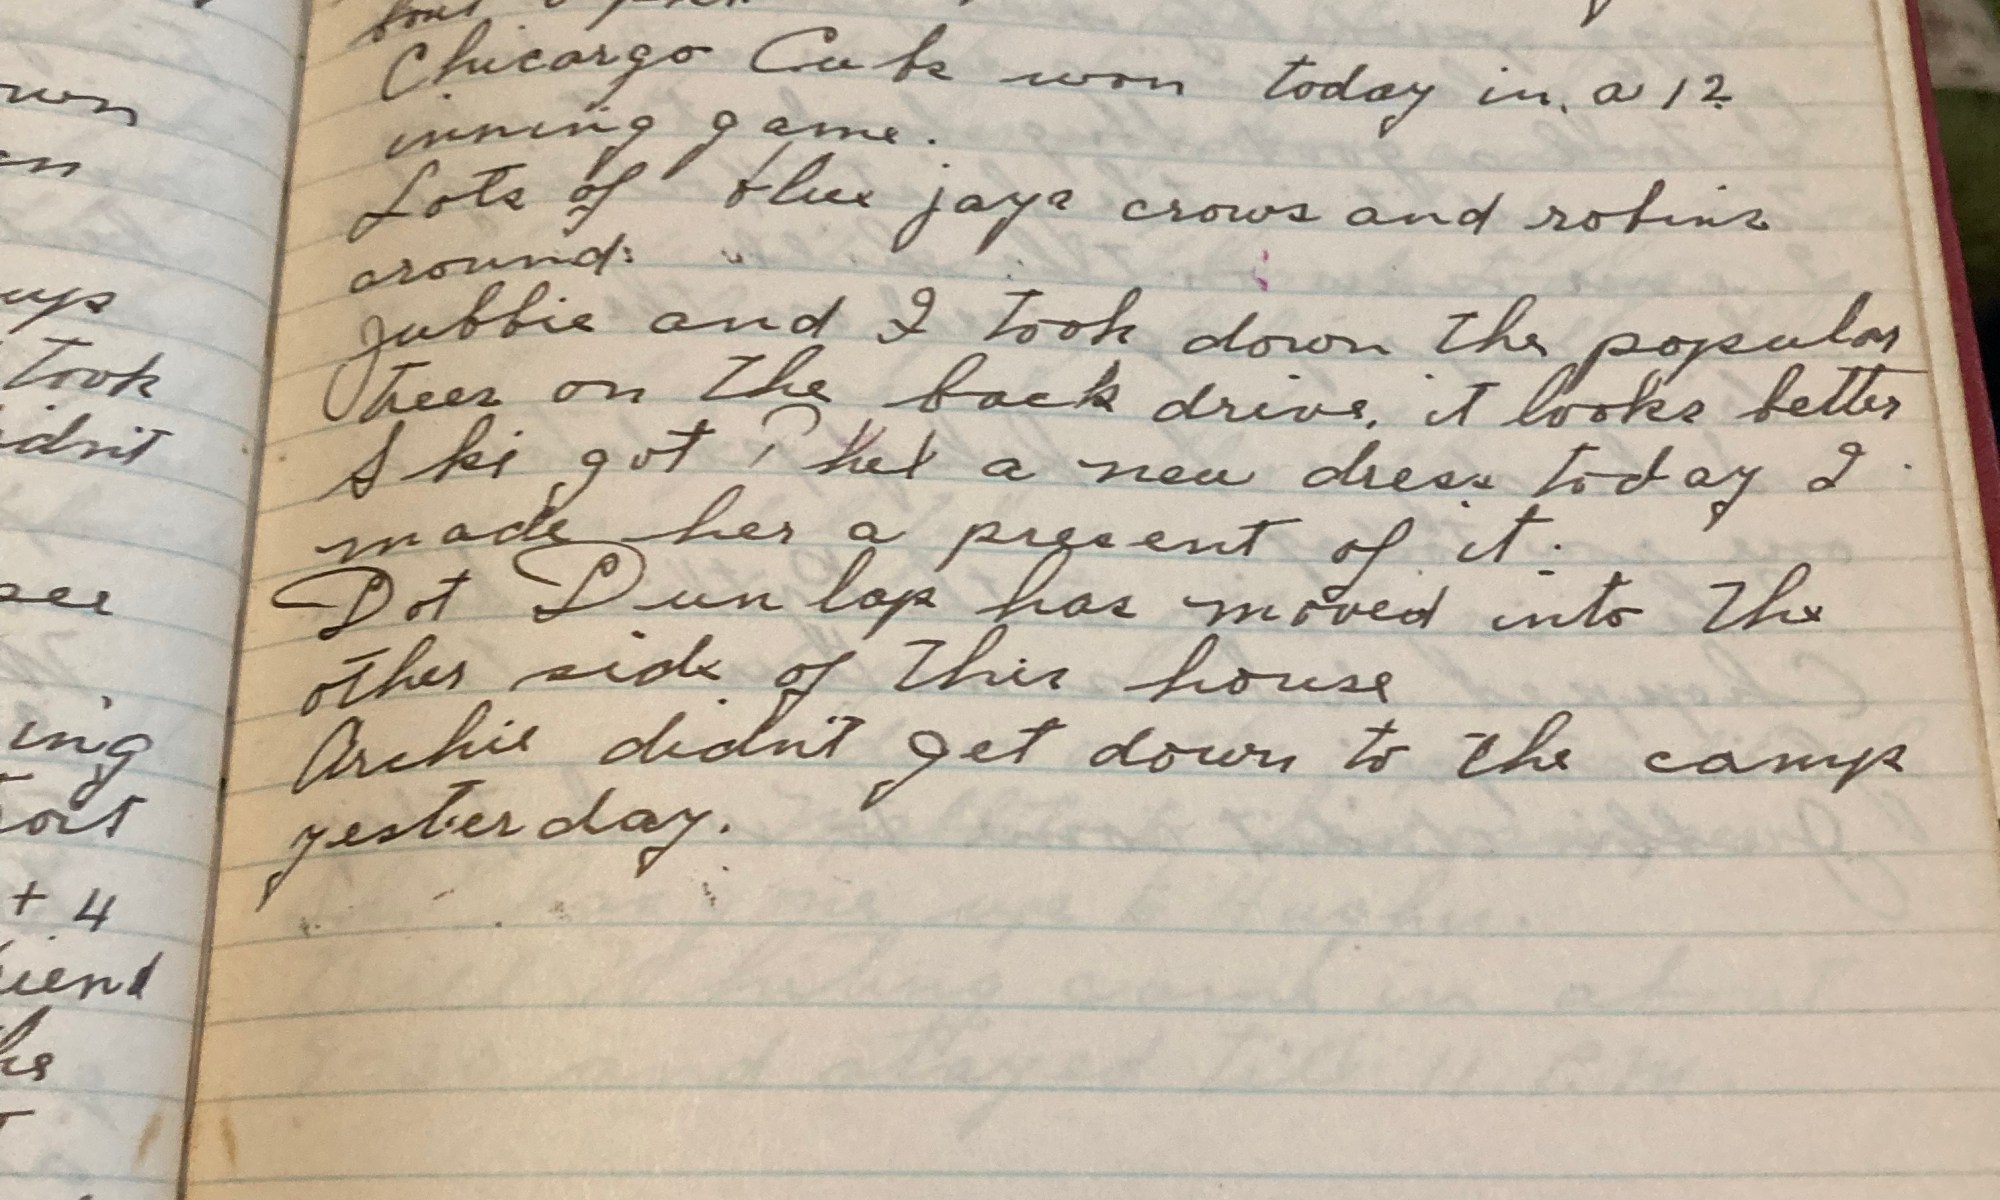 own
en
ups
took
idn't
see
ing
ort
+ 4
iend
he
Chicargo Cubs won today in a 12
inning game.
Lots of blue jays crows and robins
around.
Jubbie and I took down the popular
trees on the back drive, it looks better
Ski got a new dress today I
made her a present of it.
Dot Dunlap has moved into the
other side of this house
Archie didn't get down to the camp
yesterday.